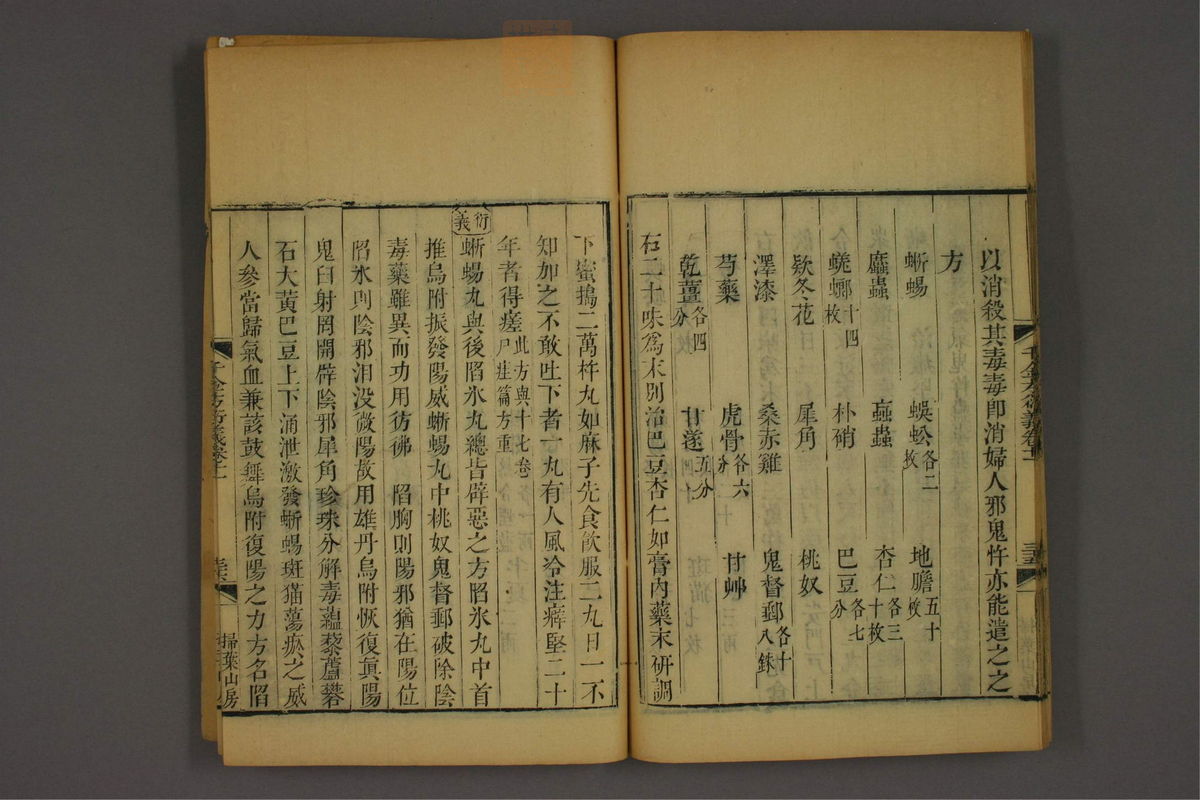 以消殺其毒毒即消婦人邪鬼忤亦能遣之之
方
蜥蜴 蜈蚣各二枚 地膽五十枚
䗪蟲 蝱蟲 杏仁各三十枚
蜣螂十四枚 朴硝 巴豆各七分
欵冬花 犀角 桃奴
澤漆 桑赤雞 鬼督郵各十八銖
芍藥 虎骨各六分 甘艸
乾薑各四分 甘遂五分
右二十味爲末別治巴豆杏仁如膏內藥末研調
下蜜搗二萬杵丸如麻子先食飲服二丸日一不
知加之不敢吐下者一丸有人風冷注癖堅二十
年者得瘥此方與十七卷尸疰篇方重
衍義
蜥蜴丸與後陷氷丸總皆辟惡之方陷氷丸中首
推烏附振發陽威蜥蜴丸中桃奴鬼督郵破除陰
毒藥雖異而功用彷彿 陷胸則陽邪猶在陽位
陷氷則陰邪汨没微陽故用雄丹烏附恢復眞陽
鬼臼射罔開辟陰邪犀角珍珠分解毒蘊藜蘆礬
石大黄巴豆上下涌泄激發蜥蜴斑猫蕩瘀之威
人參當歸氣血兼該鼓舞烏附復陽之力方名陷
千金方衍義卷十一
掃葉山房